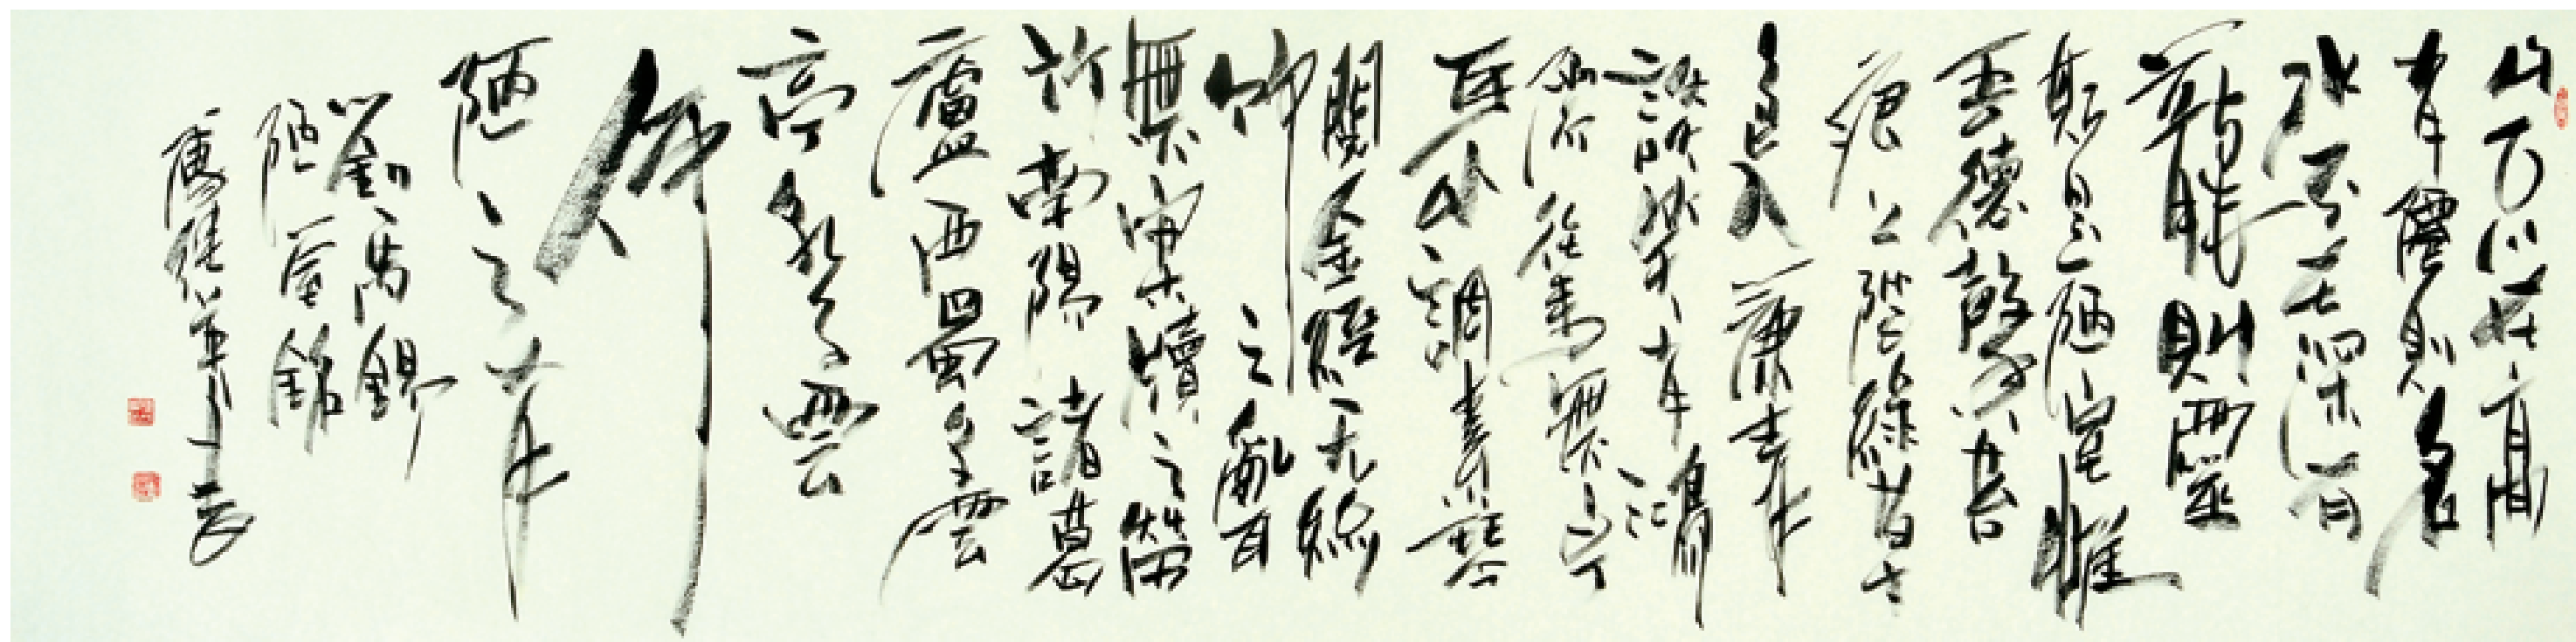 山不在高
有僊則名
水不在深有
龍則靈
斯是陋室惟
吾德馨苔
痕上階綠草
色入簾青
談笑有鴻
儒往來無白丁
可以調素琴
閱金經无絲
竹之亂耳
無案牘之勞
形南陽諸葛
廬西蜀子雲
亭孔子雲
何
陋之有
劉禹錫
陋室銘